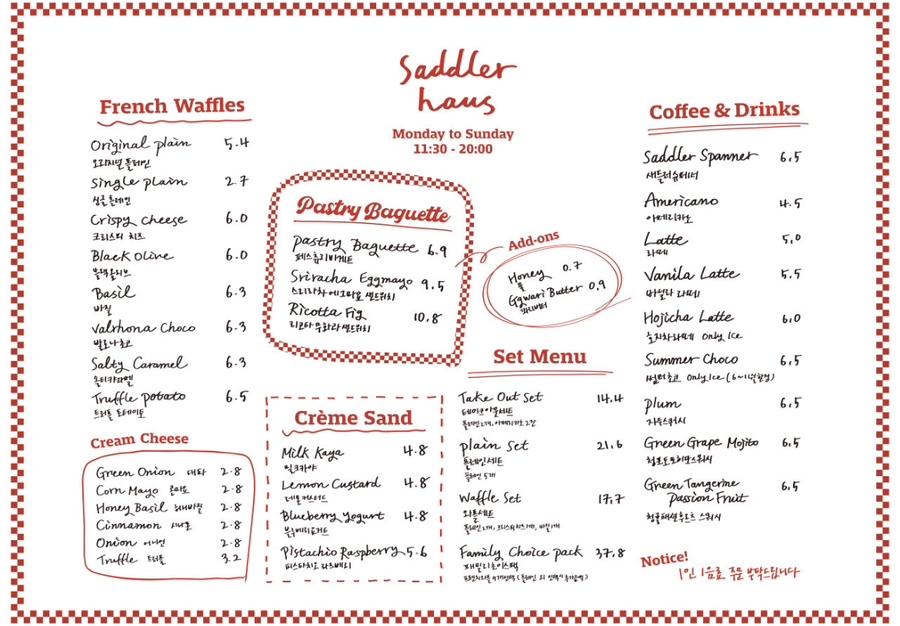 Saddler
haus
Monday to Sunday
11:30 - 20:00
French Waffles
Original plain 5.4
오리지널 플레인
Single plain 2.7
싱글 플레인
Crispy cheese 6.0
크리스피 치즈
Black Olive 6.0
블랙올리브
Basil 6.3
바질
Valrhona Choco 6.3
발로나 초코
Salty Caramel 6.3
솔티카라멜
Truffle potato 6.5
트러플 포테이토
Cream Cheese
Green Onion 대파 2.8
Corn Mayo 콘마요 2.8
Honey Basil 허니바질 2.8
Cinnamon 시나몬 2.8
Onion 어니언 2.8
Truffle 트러플 3.2
Pastry Baguette
Pastry Baguette 6.9
페스츄리바게트
Sriracha Eggmayo 9.5
스리라차 에그마요 샌드위치
Ricotta Fig 10.8
리코타 무화과 샌드위치
Add-ons
Honey 0.7
꿀
Ggwari Butter 0.9
꽈리버터
Crème Sand
Milk Kaya 4.8
밀크카야
Lemon Custard 4.8
레몬커스터드
Blueberry Yogurt 4.8
블루베리요거트
Pistachio Raspberry 5.6
피스타치오 라즈베리
Set Menu
Take Out Set 14.4
테이크아웃세트
플레인 2개, 아메리카노 2잔
plain Set 21.6
플레인세트
플레인 5개
Waffle Set 17.7
와플세트
Family Choice pack 37.8
패밀리초이스팩
Coffee & Drinks
Saddler Spanner 6.5
새들러슈페너
Americano 4.5
아메리카노
Latte 5.0
라떼
Vanila Latte 5.5
바닐라 라떼
Hojicha Latte 6.0
호지차라떼 Only Ice
Summer Choco 6.5
썸머초코 Only Ice
plum 6.5
자두스쿼시
Green Grape Mojito 6.5
청포도모히또스쿼시
Green Tangerine
Passion Fruit 6.5
청귤패션후르츠 스쿼시
Notice!
1인 1음료 주문 부탁드립니다